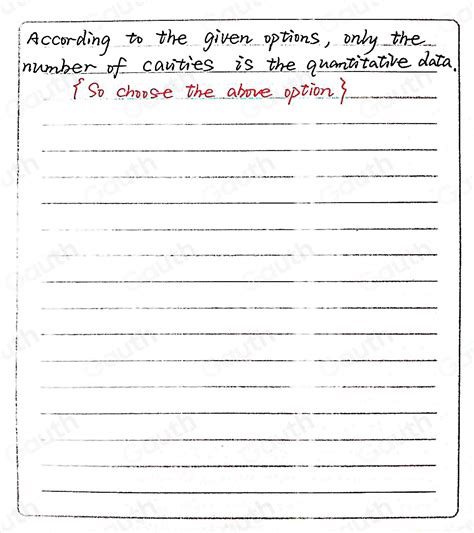 According to the given options, only the
number of cavities is the quantitative data.
{ So choose the above option }